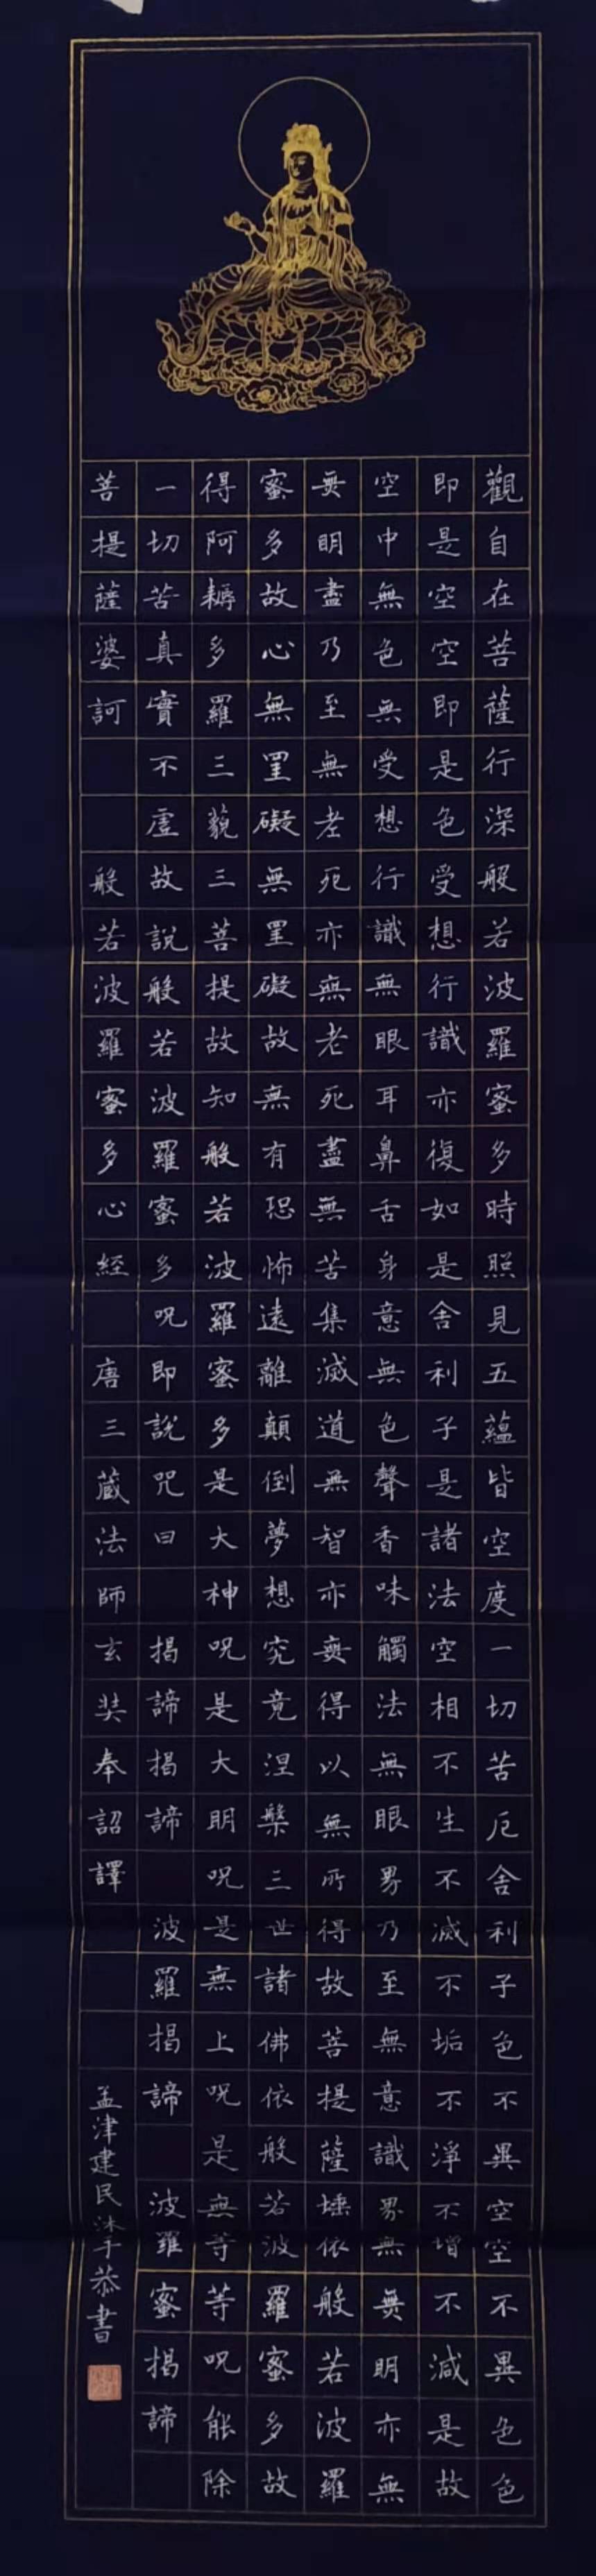 觀自在菩薩行深般若波羅蜜多時照見五蘊皆空度一切苦厄舍利子色不異空空不異色色
即是空空即是色受想行識亦復如是舍利子是諸法空相不生不滅不垢不淨不增不減是故
空中無色無受想行識無眼耳鼻舌身意無色聲香味觸法無眼界乃至無意識界無無明亦無
無明盡乃至無老死亦無老死盡無苦集滅道無智亦無得以無所得故菩提薩埵依般若波羅
蜜多故心無罣礙無罣礙故無有恐怖遠離顛倒夢想究竟涅槃三世諸佛依般若波羅蜜多故
得阿耨多羅三藐三菩提故知般若波羅蜜多是大神呪是大明呪是無上呪是無等等呪能除
一切苦真實不虛故說般若波羅蜜多呪即說呪曰 揭諦揭諦 波羅揭諦 波羅蜜揭諦
菩提薩婆訶 般若波羅蜜多心經 唐三藏法師玄奘奉詔譯
孟津建民沐手恭書